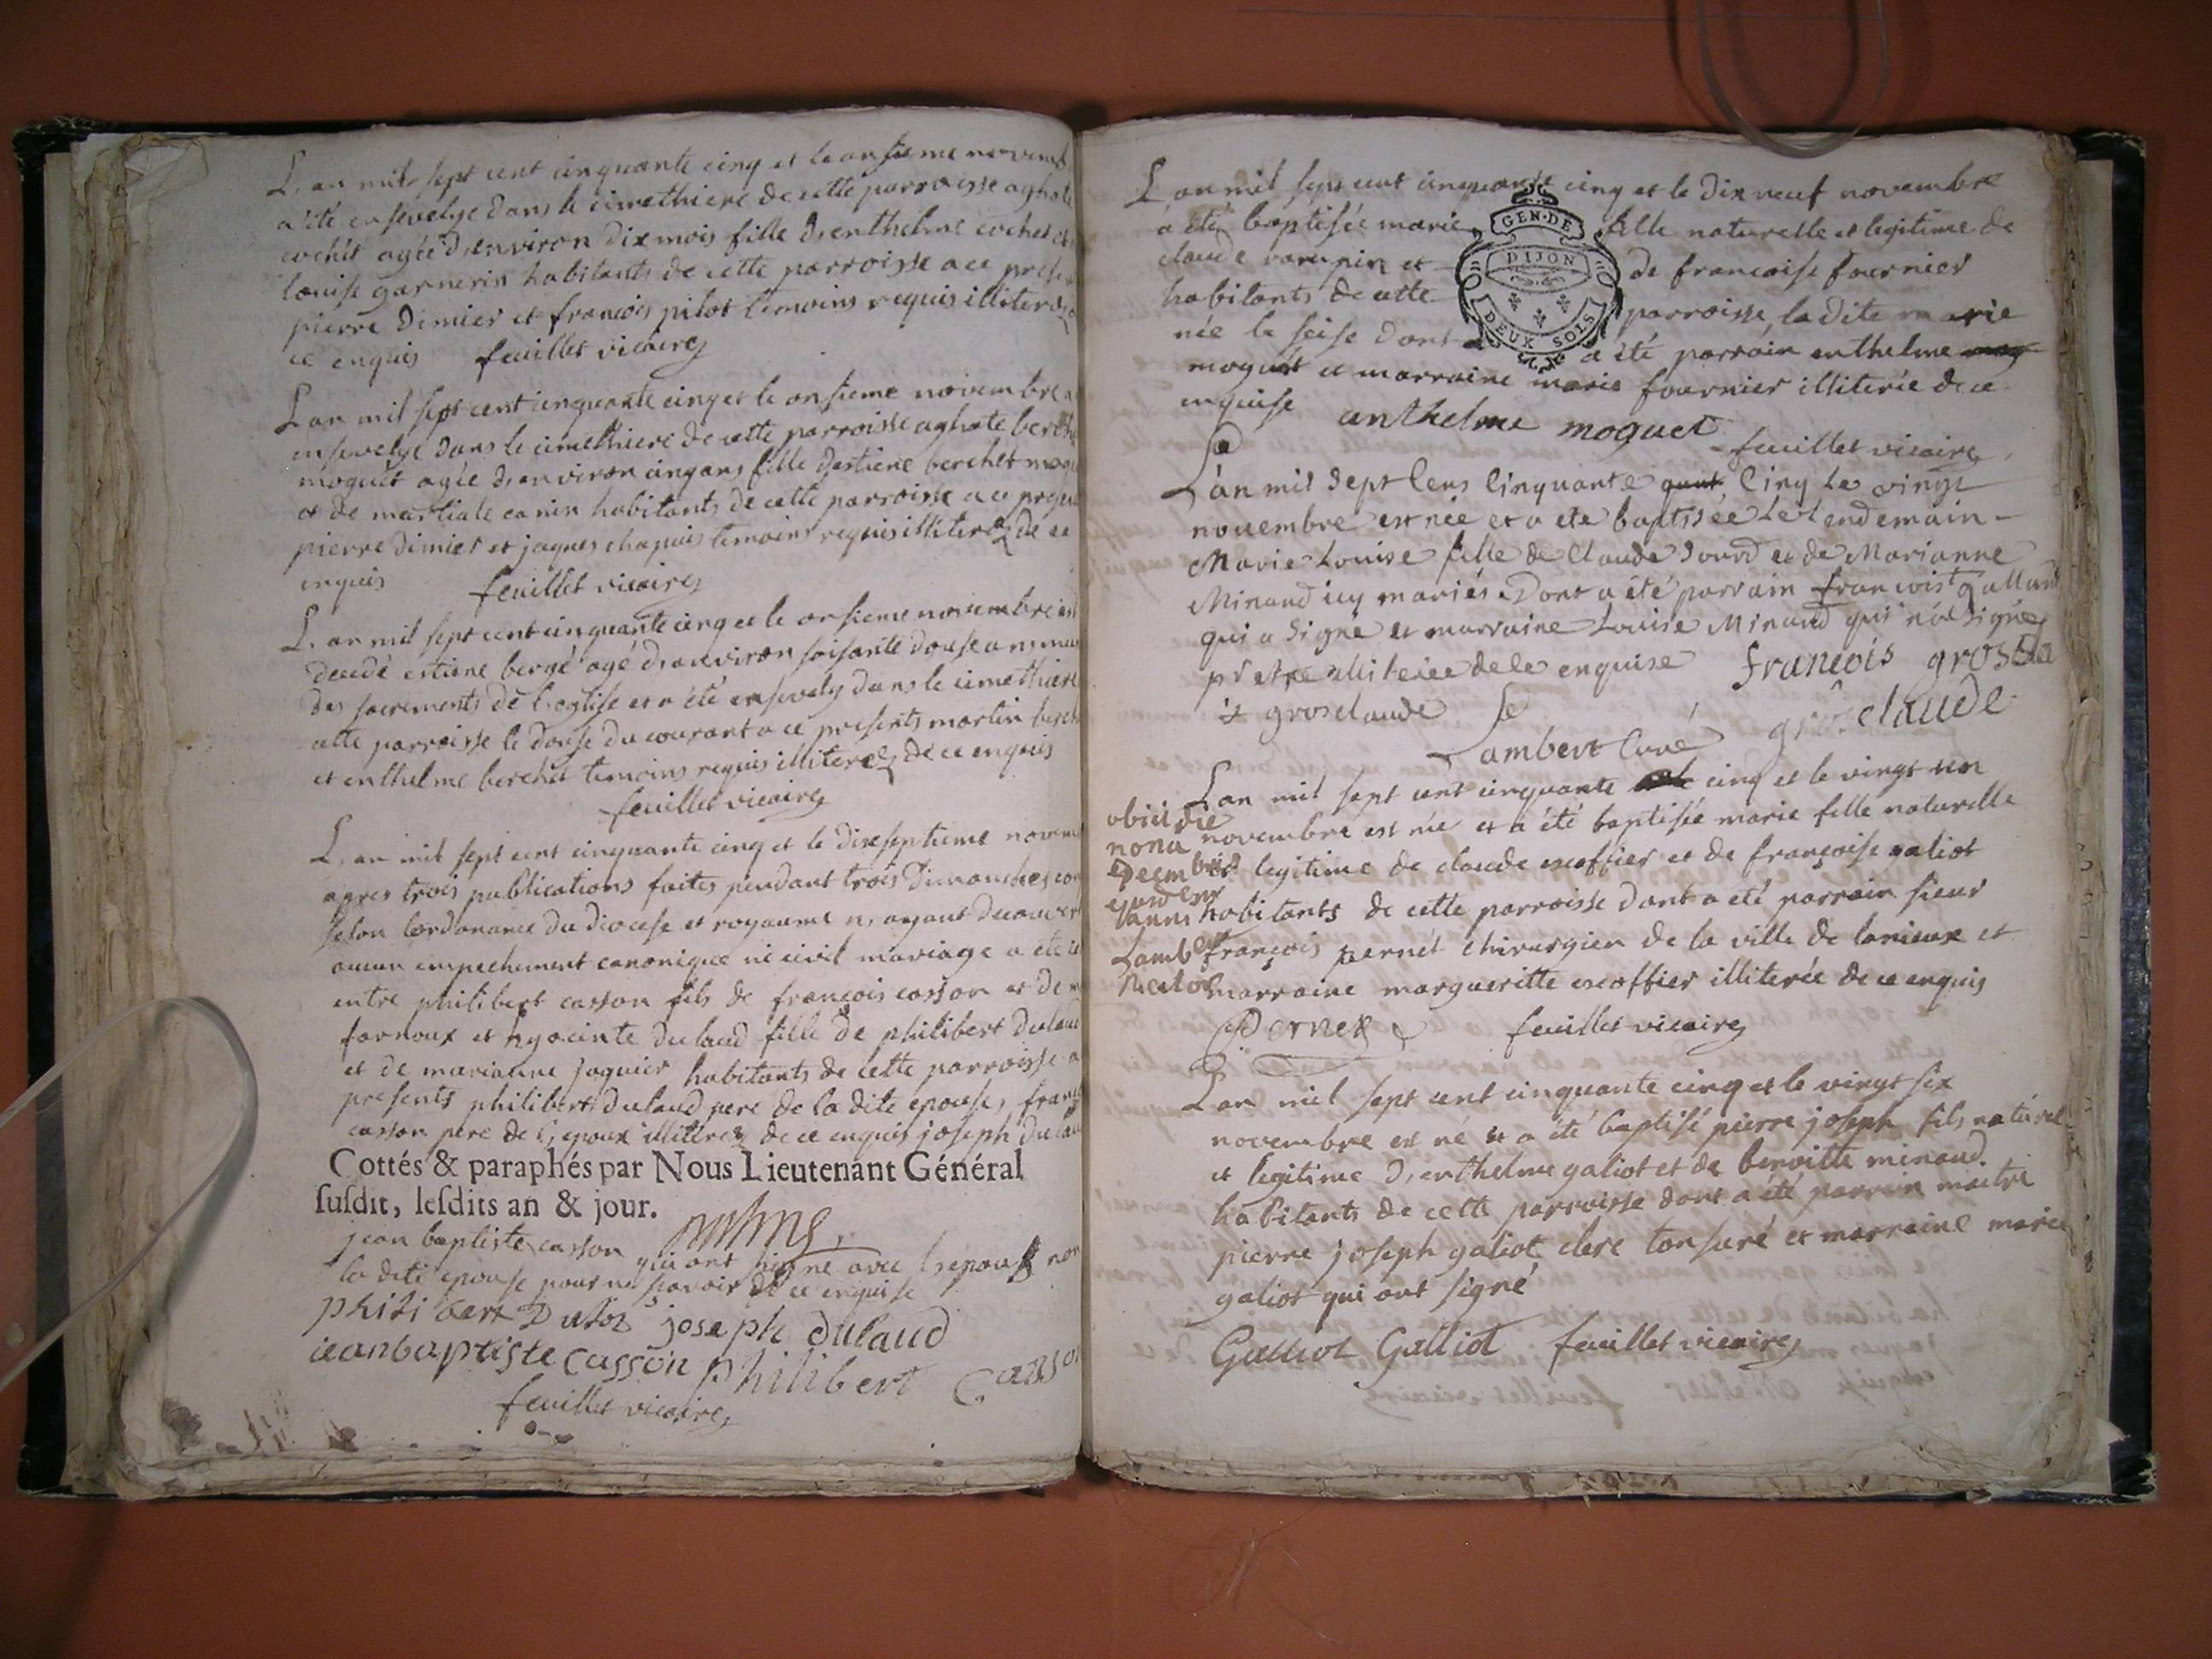 L'an mil sept cent cinquante cinq et le onsieme novemb
a été ensevelye dans le cimethiere de cette parroisse aghate
cochet agée d'environ dix mois fille d'enthelme cochet et
louise garnerin habitants de cette parroisse a ce presen
pierre dimier et francois pilot temoins requis illiterés
ce enquis feuillet vicaire
L'an mil sept cent cinquante cinq et le onsieme novembre a
ensevelye dans le cimethiere de cette parroisse aghate berche
moguet agée d'environ cinq ans fille d'estiene berchet mogu
et de martiale canin habitants de cette parroisse a ce presen
pierre dimier et jaques chapuis temoins requis illiterés de ce
enquis feuillet vicaire
L'an mil sept cent cinquante cinq et le onsieme novembre est
decedé estiene bergé agé d'environ soisante douse ans muni
des sacrements de l'eglise et a été ensevely dans le cimethiere
cette parroisse le douse du courant a ce presents martin berch
et enthelme berchet temoins requis illiterés de ce enquis
feuillet vicaire
L'an mil sept cent cinquante cinq et le dixseptieme novem
apres trois publications faites pendant trois dimanches con
selon l'ordonance du diocese et royaume n'ayant decouvert
aucun empechement canonique ni civil mariage a été ce
entre philibert casson fils de francois casson et de m
farnoux et hyacinte dulaud fille de philibert dulaud
et de marianne jaquier habitants de cette parroisse a
presents philibert dulaud pere de la dite epouse, franc
casson pere de l'epoux illiterés de ce enquis joseph dulau
Cottés & paraphés par Nous Lieutenant Général
susdit, lesdits an & jour.
jean baptiste casson qui ont signé avec l'epoux non
la dite epouse pour ne savoir de ce enquise
philibert Dulos joseph dulaud
ieanbaptiste Casson Philibert Casson
feuillet vicaire
L'an mil sept cent cinquante cinq et le dix neuf novembre
a été baptisée marie fille naturelle et legitime de
claude varupin et de francoise fournier
habitants de cette parroisse, la dite marie
née le seise dont a été parrain enthelme mog
moguet et marraine marie fournier illiterée de ce
enquise anthelme moguet
feuillet vicaire
GEN·DE
DIJON
DEUX SOLS
L'an mil sept Cens Cinquante quat Cinq Le vingt
novembre est née et a ete baptisée Le Lendemain
Marie Louise fille de Claude Sourd et de Marianne
Minaud icy mariés Dont a été parrain francois galland
qui a Signé et marraine Louise Minaud qui n'a Signé
pr etre illiterée de Ce enquise françois grosda
+ grosclaude groselaude
Lambert Curé
L'an mil sept cent cinquante cinq et le vingt un
novembre est née et a été baptisée marie fille naturelle
et legitime de claude escoffier et de françoise galiot
habitants de cette parroisse dont a eté parrain sieur
françois pernet chirurgien de la ville de lanieux et
marraine margueritte escoffier illiterée de ce enquis
obiit die
nona
decembris
ejusdem
anni
Lambert
Rector
Pernet feuillet vicaire
L'an mil sept cent cinquante cinq et le vingt six
novembre est né et a été baptisé pierre joseph fils naturel
et legitime d'enthelme galiot et de benoitte minaud
habitants de cette parroisse dont a été parrain maitre
pierre joseph galiot clerc tonsuré et marraine marie
galiot qui ont signé
Galliot Galliot feuillet vicaire